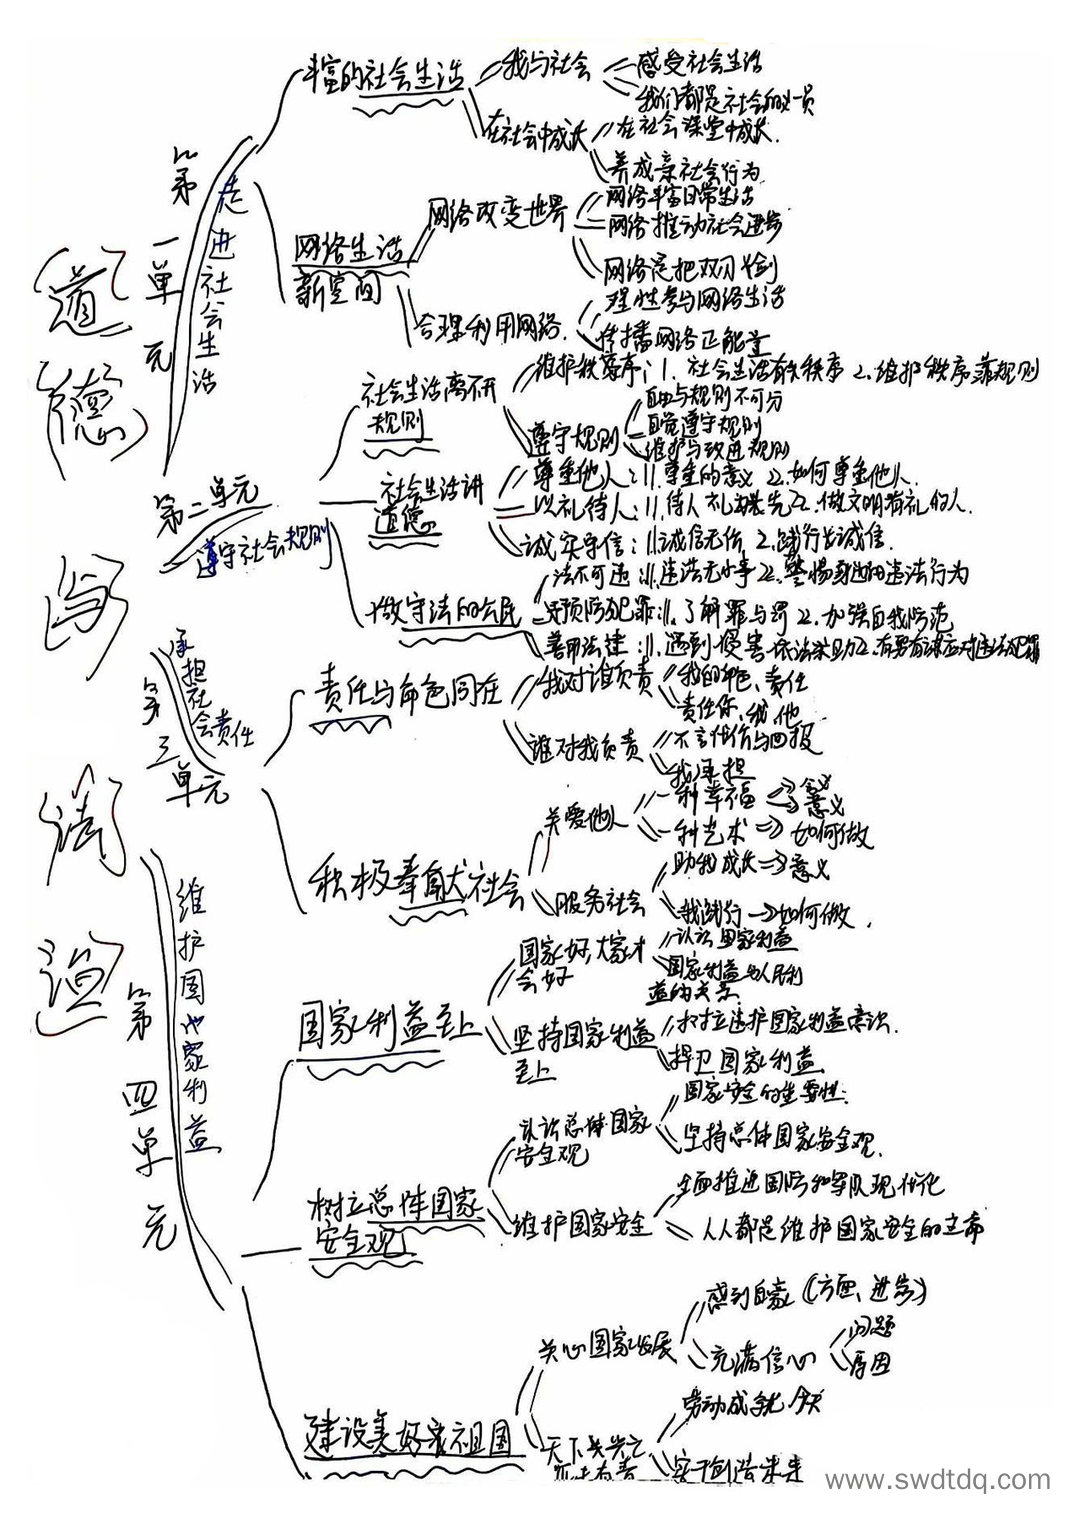 道德与法治
第一单元
走进社会生活
丰富的社会生活
我与社会
感受社会生活
我们都是社会的一员
在社会中成长
在社会课堂中成长
养成亲社会行为
网络生活
新空间
网络改变世界
网络丰富日常生活
网络推动社会进步
网络是把双刃剑
合理利用网络
理性参与网络生活
传播网络正能量
第二单元
遵守社会规则
社会生活离不开
规则
维护秩序：1. 社会生活有秩序 2.维护秩序靠规则
遵守规则
自由与规则不可分
自觉遵守规则
维护与改进规则
社会生活讲
道德
尊重他人：1.尊重的意义 2.如何尊重他人
以礼待人：1.待人礼为先 2.做文明有礼的人
诚实守信：1.诚信无价 2.践行诚信
做守法的公民
法不可违：1.违法无小事 2.警惕身边的违法行为
预防犯罪：1.了解罪与罚 2.加强自我防范
善用法律：1.遇到侵害 依法求助 2.有勇有谋应对违法犯罪
第三单元
承担社会责任
责任与角色同在
我对谁负责
我的角色、责任
责任你、我、他
谁对我负责
不言代价与回报
我承担
积极奉献社会
关爱他人
一种幸福 意义
一种艺术 如何做
服务社会
助我成长 意义
我践行 如何做
第四单元
维护国家利益
国家利益至上
国家好，大家才
会好
认识国家利益
国家利益与人民利
益的关系
坚持国家利益
至上
树立维护国家利益意识
捍卫国家利益
树立总体国家
安全观
认识总体国家
安全观
国家安全的重要性
坚持总体国家安全观
维护国家安全
全面推进国防和军队现代化
人人都是维护国家安全的主角
建设美好祖国
关心国家发展
感到自豪（方面、进步）
充满信心
问题
原因
天下兴亡
匹夫有责
劳动成就今天
实干创造未来
www.swdtdq.com